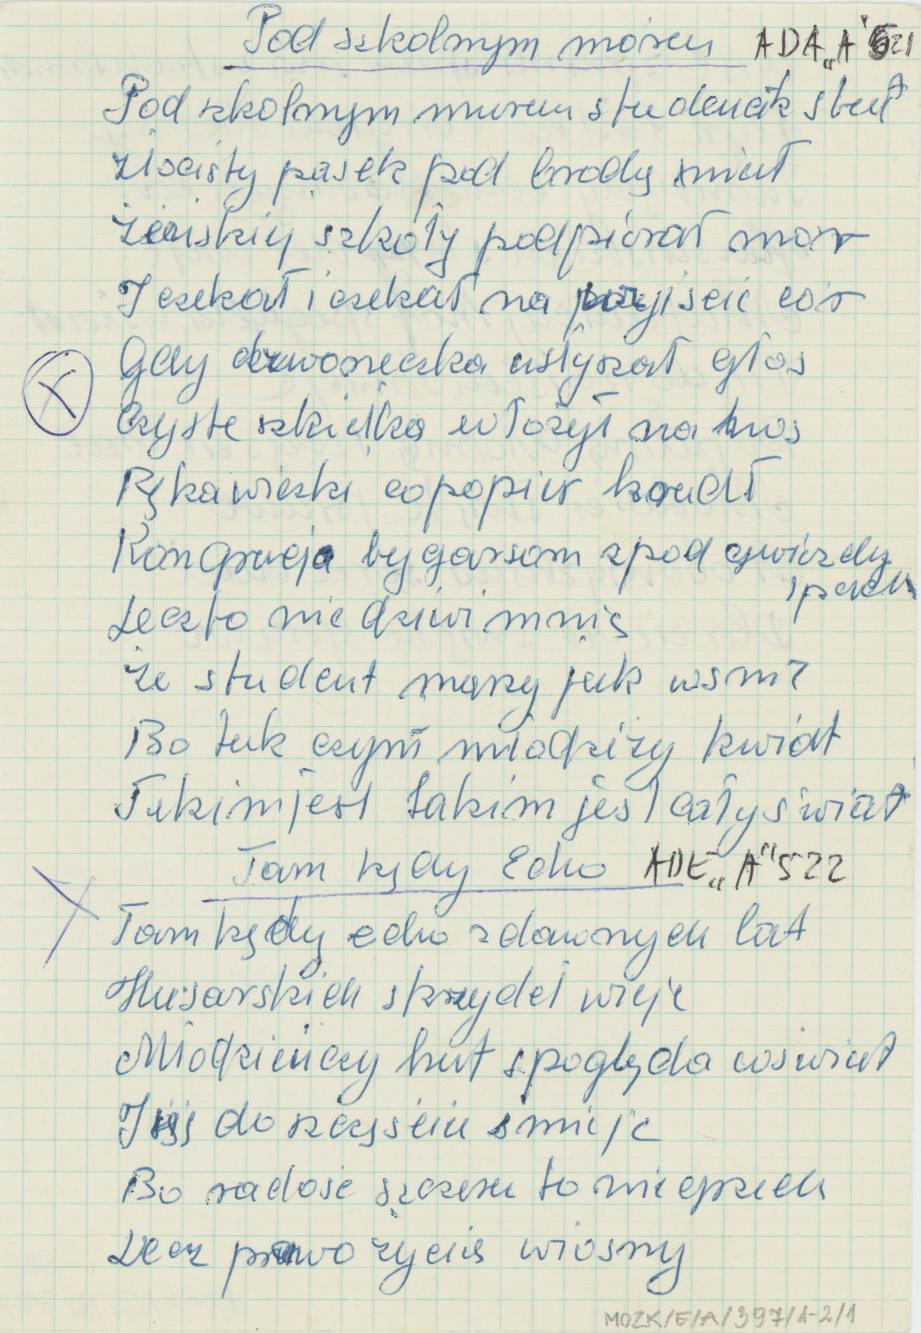 Pod szkolnym mórem ADA „A" 521
Pod szkolnym murem studencik stał
złocisty pasek pod brodą miał
Żeńskiy szkoły podpierał mór
I czekał i czekał na przyjście cór
Gdy dzwoneczka usłyszał głos
Czyste szkiełka włożył na nos
Rękawiczki
zpod gwiazdy
Lecz to nie dziwi mnię
Że student marzy jak wśnie
Bo tak czyni młodzizy kwiat
Takim jest takim jest cały świat
Tam kędy Echo ADE „A" 522
Tam kędy echo zdawnych lat
Husarskich skrzydeł wieje
Młodzieńczy hut spogląda wświat
I do szczęścia śmieje
Bo radość szczera to niegrzech
Lecz prawo życia wiosny
MOZK/E/A/397/1-2/1